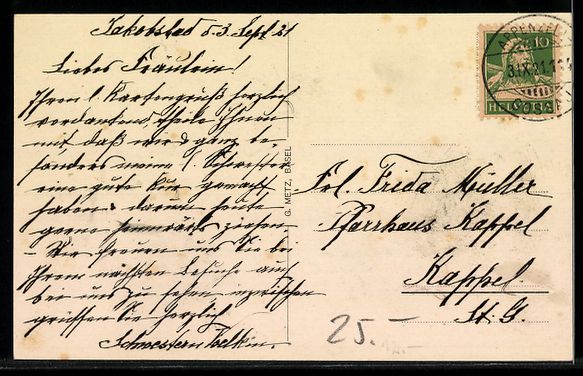 Jakobsbad d. 3. Sept. 21
Liebes Fräulein!
Ihren l. Kartengruß herzlich
verdankend, theile Ihnen
mit daß wir ganz be-
sonders meine l. Schwester
eine gute Kur gemacht
haben darum heute
gerne heimwärts ziehen
Wir freuen uns Sie bei
Ihrem nächsten Besuche auch
bei uns zu sehen, inzwischen
grüssen Sie herzlich
Schwestern
G. METZ, BASEL
APPENZELL
3.IX.21
10
HELVETIA
Frl. Frida Müller
Pfarrhaus Kappel
Kappel.
St. G.
25.-
12.-